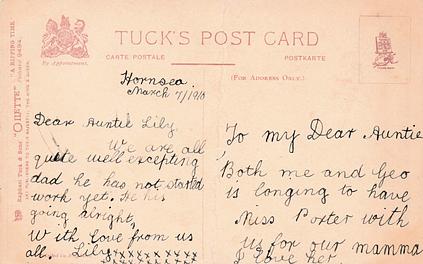 TUCK'S POST CARD
By Appointment.
CARTE POSTALE
POSTKARTE
(FOR ADDRESS ONLY.)
"A RIPPING TIME."
Raphael Tuck & Sons' "OILETTE"
Hornsea.
March 7/1910
Dear Auntie Lily
We are all
quite well excepting
dad he has not started
work yet. He his
going alright,
With love from us
all. Lily xxxxxxxx
To my Dear Auntie
Both me and Geo
is longing to have
Miss Porter with
us for our mamma
I love her.